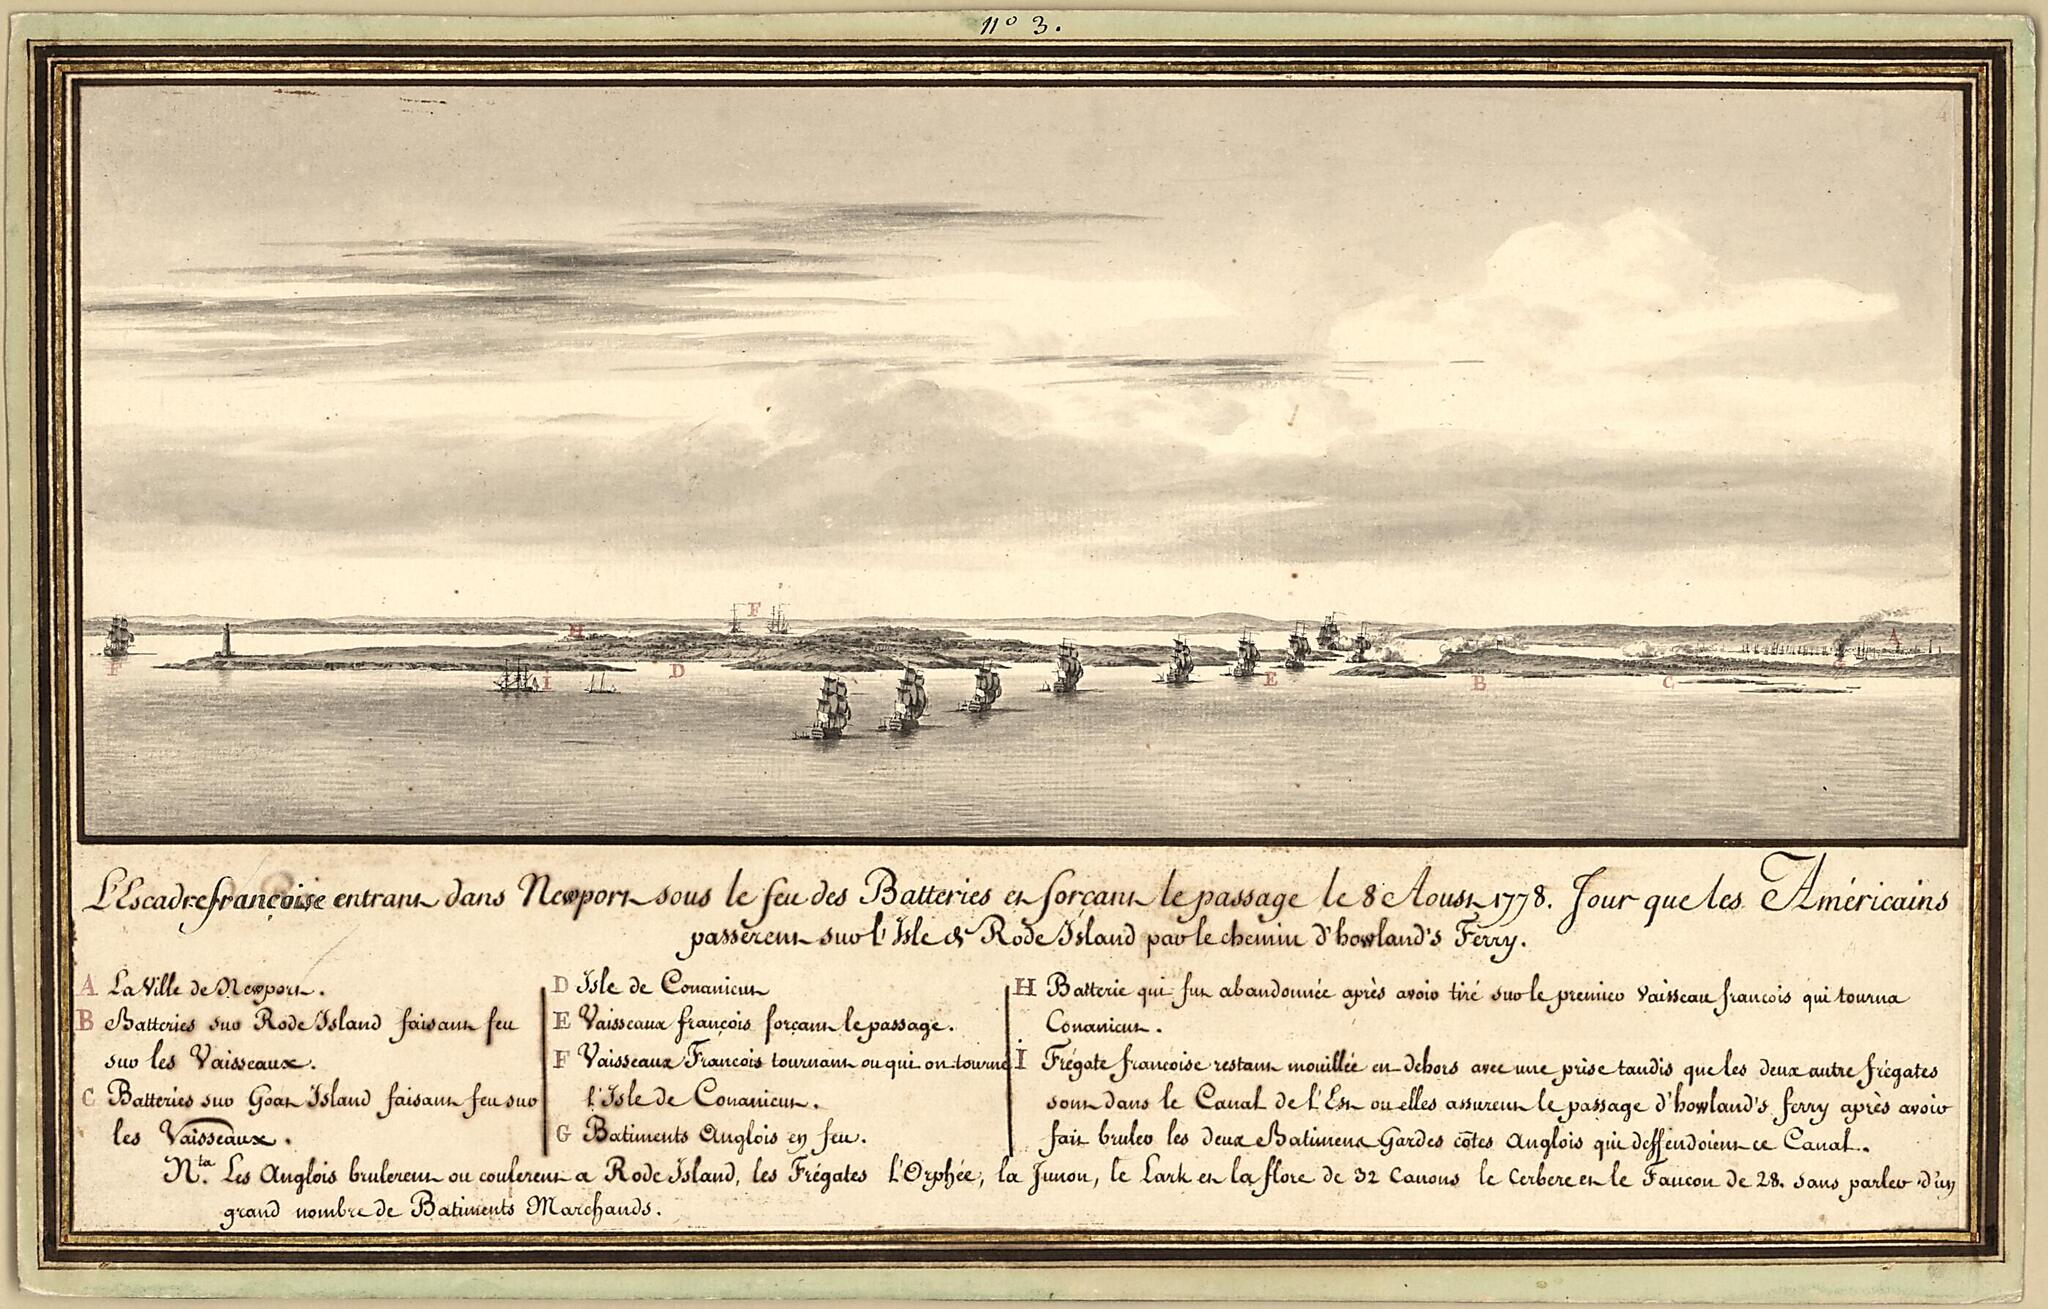 nº 3.
4
F
H
F
I
D
E
B
C
G
A
L'Escadre françoise entrant dans Newport sous le feu des Batteries et forçant le passage le 8 Aoust 1778. Jour que les Américains
passèrent sur l'Isle de Rode Island par le chemin d'howland's Ferry.
A La Ville de Newport.
B Batteries sur Rode Island faisant feu
sur les Vaisseaux.
C Batteries sur Goat Island faisant feu sur
les Vaisseaux.
D Isle de Conanicut
E Vaisseaux françois forçant le passage.
F Vaisseaux François tournant ou qui ont tourné
l'Isle de Conanicut.
G Batiments Anglois en feu.
H Batterie qui fut abandonnée après avoir tiré sur le premier Vaisseau françois qui tourna
Conanicut.
I Frégate françoise restant mouillée en dehors avec une prise tandis que les deux autre frégates
sont dans le Canal de l'Est ou elles assurent le passage d'howland's ferry après avoir
fait bruler les deux Batimens Gardes côtes Anglois qui deffendoient ce Canal.
Nta. Les Anglois brulerent ou coulerent a Rode Island, les Frégates l'Orphée, la Junon, le Lark et la flore de 32 Canons le Cerbere et le Faucon de 28. sans parler d'un
grand nombre de Batiments Marchands.